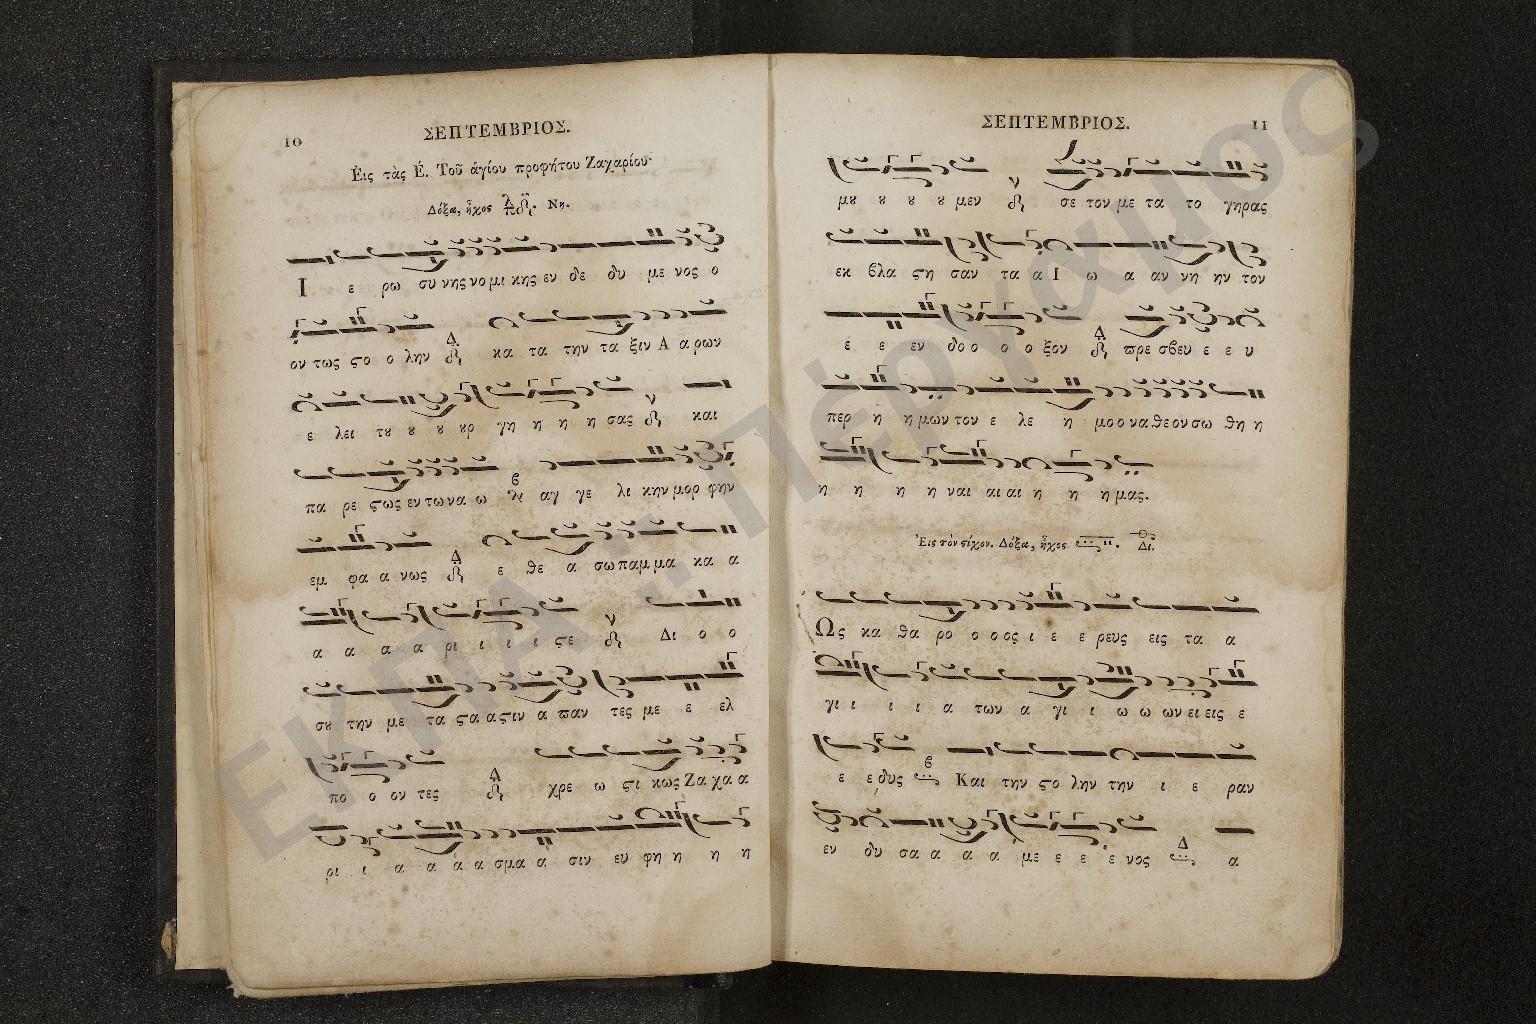 10
ΣΕΠΤΕΜΒΡΙΟΣ.
Εἰς τὰς Ε΄. Τοῦ ἁγίου προφήτου Ζαχαρίου·
Δόξα, ἦχος Νη.
Ι ε ρω συ νης νο μι κης εν δε δυ με νος ο
ον τως ϛο ο λην Δ κα τα την τα ξιν Α α ρων
ε λει τȣ ȣ ȣ ȣρ γη η η η σας ν και
πα ρε ϛως εν τω να ω ϐ αγ γε λι κην μορ φην
εμ φα α νως Δ ε θε α σω παμ μα κα α
α α α α ρι ι ι ι ϛε ν Δι ο ο
σȣ την με τα ϛα α ϛιν α παν τες με ε ελ
πο ο ον τες Δ χρε ω ϛι κως Ζα χα α
ρι ι α α α α σμα α σιν ευ φη η η η
ΣΕΠΤΕΜΒΡΙΟΣ.
11
μȣ ȣ ȣ ȣ μεν ν σε τον με τα το γηρας
εκ ϐλα ϛη σαν τα α Ι ω α αν νη ην τον
ε ε εν δο ο ο ο ξον Δ πρε σβευ ε ε υ
περ η η μων τον ε λε η μο ο να θε ον σω θη η
η η η η ναι αι αι η η η μας.
Ἐις τὸν ϛίχον. Δόξα, ἦχος Δι.
Ως κα θα ρο ο ο ος ι ε ε ρευς εις τα α
γι ι ι ι α των α γι ι ω ω ων ει εις ε
ε ε δυς ϐ Και την ϛο λην την ι ε ραν
εν δυ σα α α α με ε ε ε νος Δ α
ΕΚΠΑ
Πέργαμος